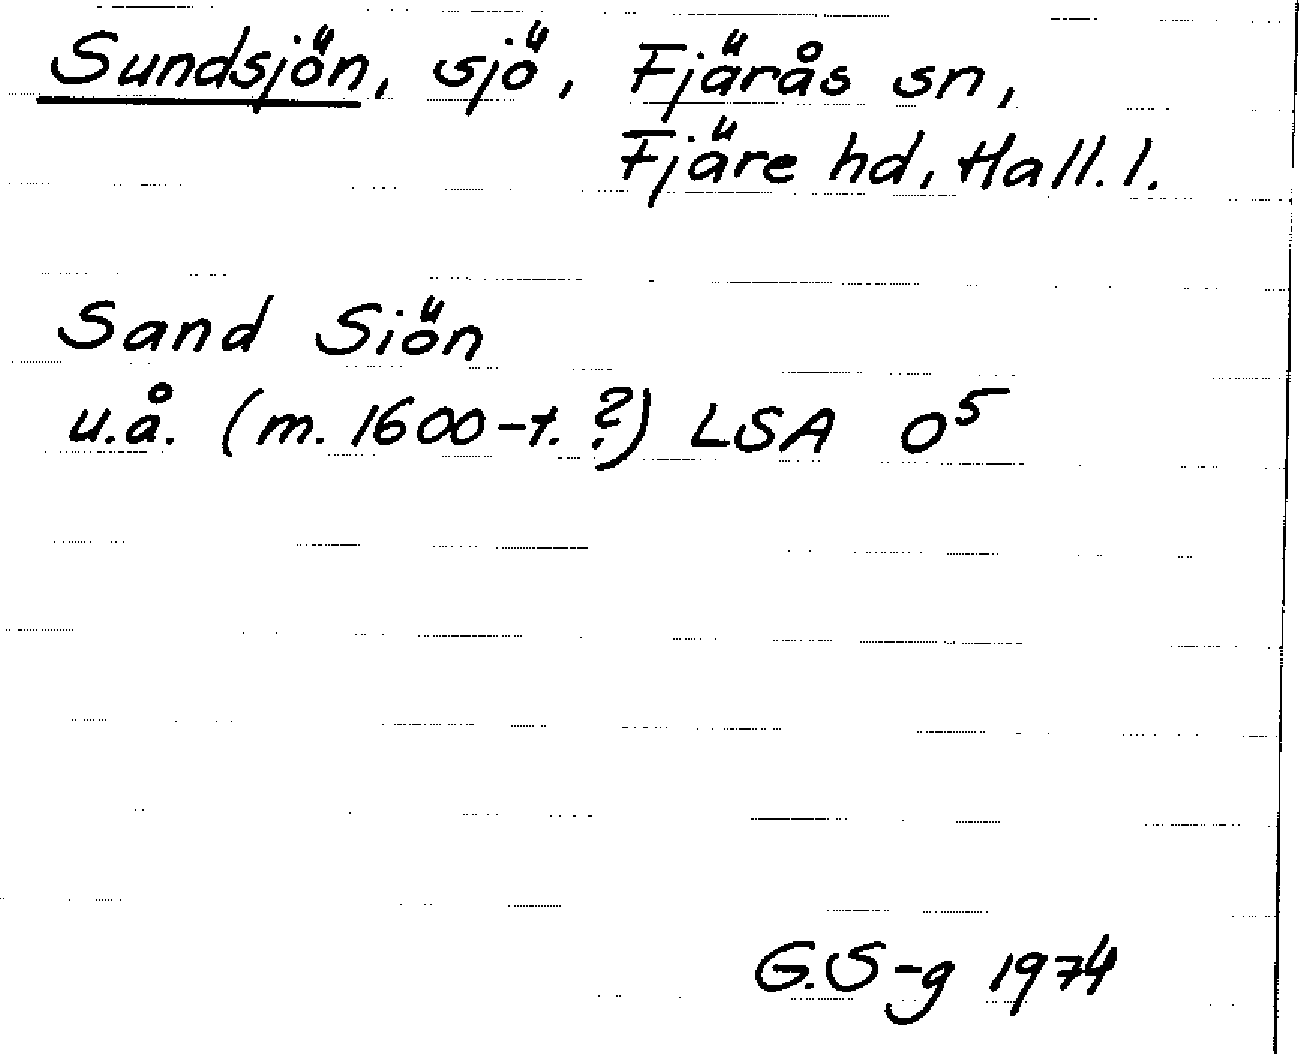 Sundsjön, sjö, Fjärås sn,
Fjäre hd, Hall. l.
Sand Siön
u.å. (m. 1600-t. ?) LSA O⁵
G.S-g 1974